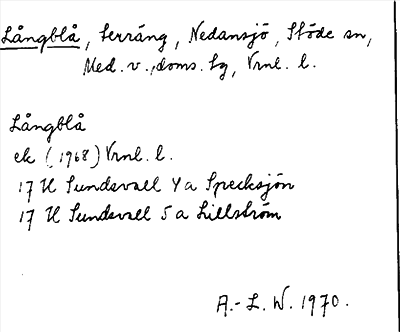 Långblå, terräng, Nedansjö, Stöde sn,
Med. v., doms. lg, Vrnl. l.
Långblå
ek (1968) Vrnl. l.
17 H Sundsvall 4 a Specksjön
17 H Sundsvall 5 a Lillström
A.-L. W. 1970.